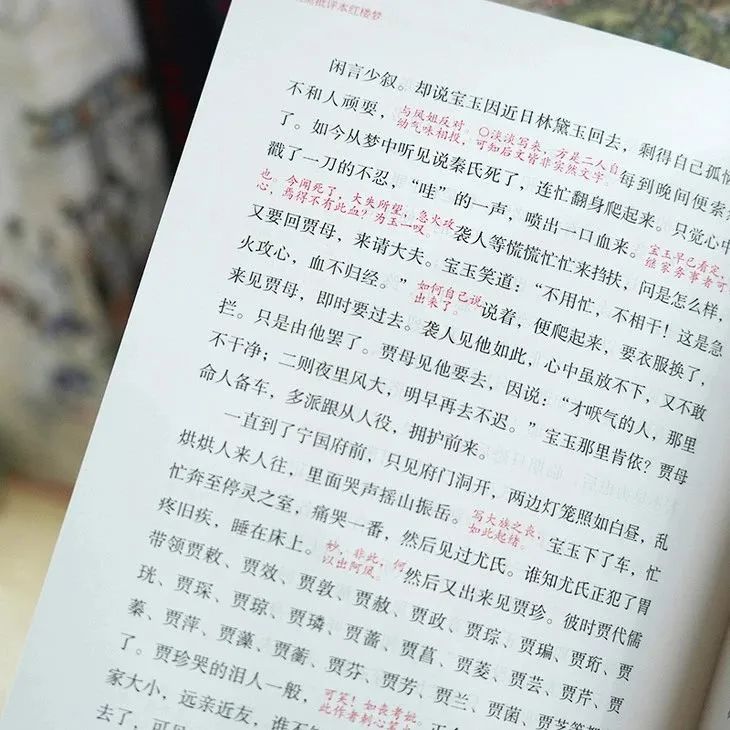 批评本红楼梦
闲言少叙。却说宝玉因近日林黛玉回去，剩得自己孤
不和人顽耍，与凤姐反对。〇淡淡写来，方是二人自幼气味相投，可知后文皆非实然文字。每到晚间便索
了。如今从梦中听见说秦氏死了，连忙翻身爬起来。只觉心中
戳了一刀的不忍，“哇”的一声，喷出一口血来。宝玉早已看定，继家务事者可
也。今闻死了，大失所望。急火攻心，焉得不有此血？为玉一叹。袭人等慌慌忙忙来搊扶，问是怎么样，
又要回贾母，来请大夫。宝玉笑道：“不用忙，不相干！这是急
火攻心，血不归经。”如何自己说出来了。说着，便爬起来，要衣服换了，
来见贾母，即时要过去。袭人见他如此，心中虽放不下，又不敢
拦。只是由他罢了。贾母见他要去，因说：“才咽气的人，那里
不干净；二则夜里风大，明早再去不迟。”宝玉那里肯依？贾母
命人备车，多派跟从人役，拥护前来。
一直到了宁国府前，只见府门洞开，两边灯笼照如白昼，乱
烘烘人来人往，里面哭声摇山振岳。写大族之丧，如此起绪。宝玉下了车，忙
忙奔至停灵之室，痛哭一番，然后见过尤氏。谁知尤氏正犯了胃
疼旧疾，睡在床上。妙，非此，何以出阿凤。然后又出来见贾珍。彼时贾代儒
带领贾敕、贾效、贾敦、贾赦、贾政、贾琮、贾㻞、贾珩、贾
珖、贾琛、贾琼、贾璘、贾蔷、贾菖、贾菱、贾芸、贾芹、贾
蓁、贾萍、贾藻、贾蘅、贾芬、贾芳、贾兰、贾菌、贾芝等
了。贾珍哭的泪人一般，可笑！如丧考妣。此作者刺心笔
家大小，远亲近友，谁不
去了，可见